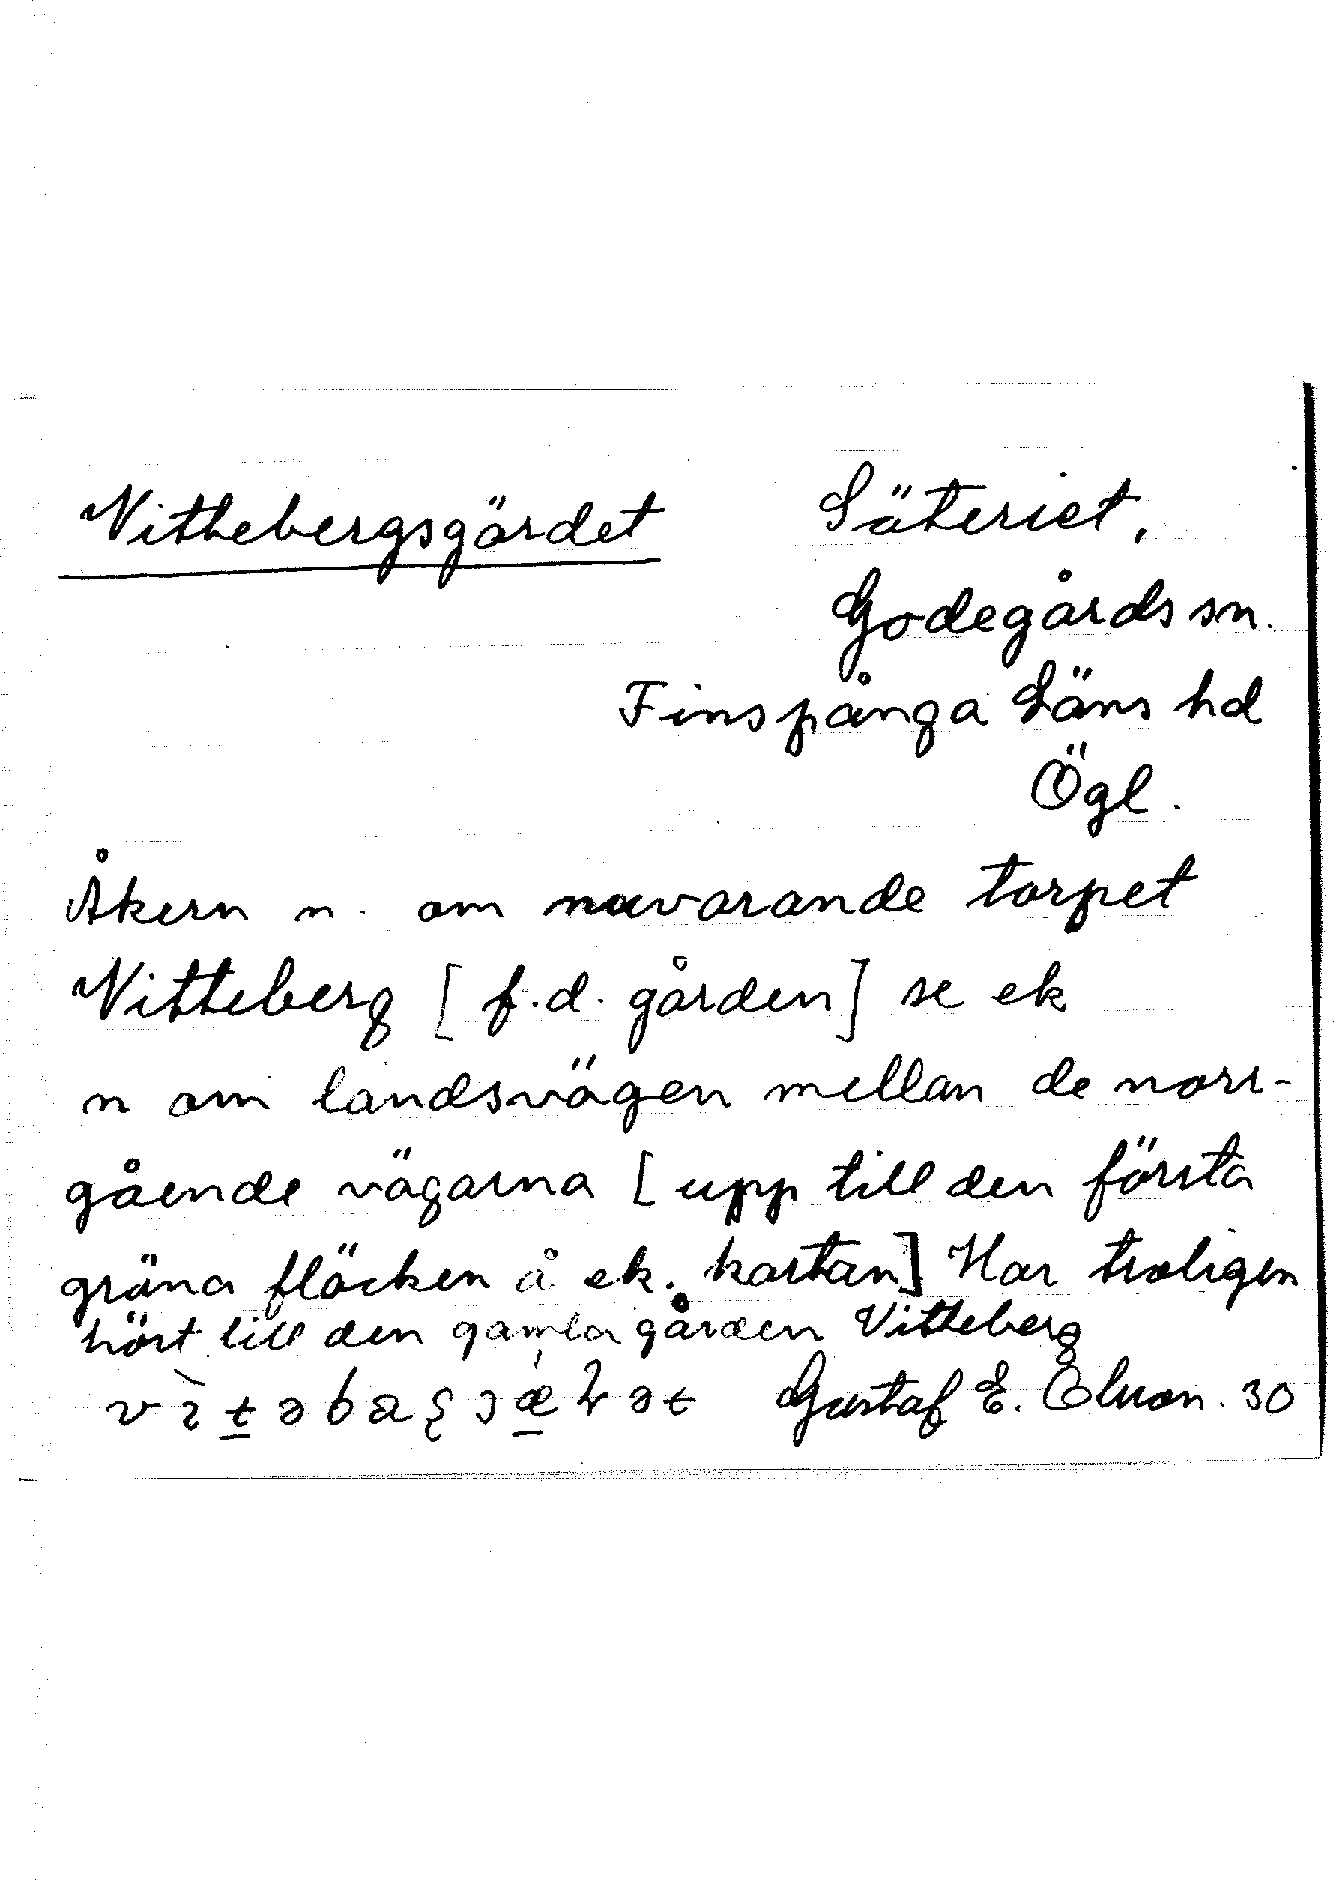 Vittebergsgärdet
Säteriet,
Godegårds sn.
Finspånga Läns hd
Ögl.
Åkern n. om nuvarande torpet
Vitteberg [f.d. gården] se ek
n om landsvägen mellan de norr-
gående vägarna [upp till den första
gröna fläcken å ek. kartan] Har troligen
hört till den gamla gården Vitteberg
Gustaf E. Olsson. 30